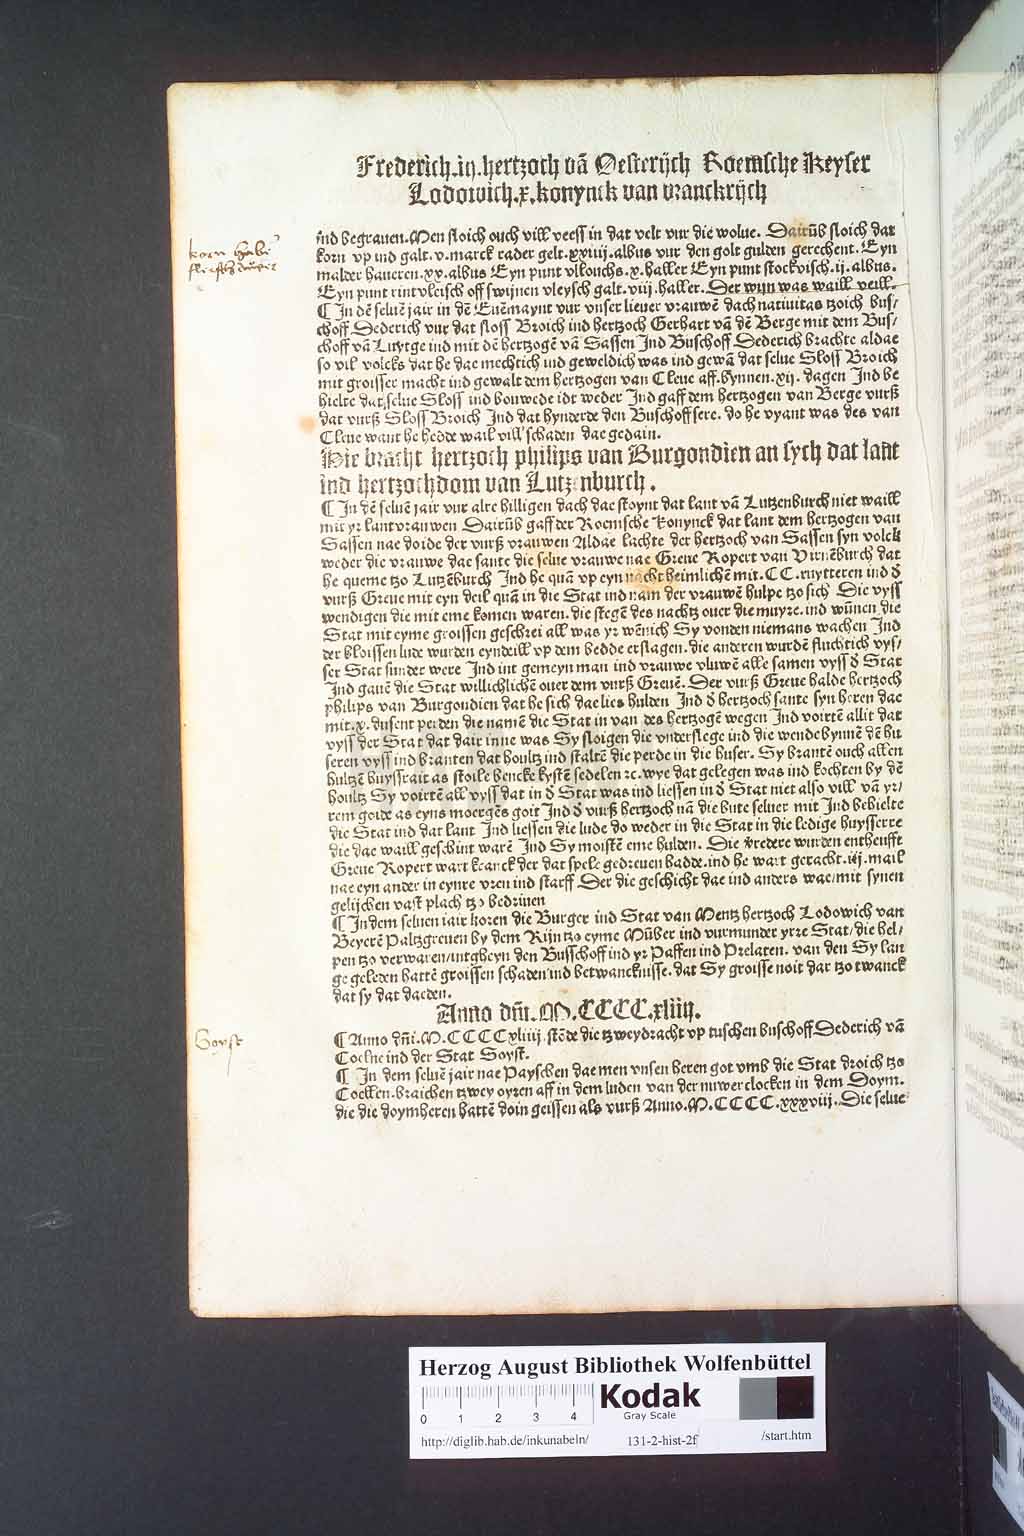 Frederich.iij.hertzoch vā Oesterijch Roemsche Keyser
Lodowich.x.konynck van vranckrijch
korn
ind begrauen. Men sloich ouch vill veess in dat velt vur die wolue. Dairūb sloich dat
korn vp ind galt.v.marck rader gelt.xxiiij.albus vur den golt gulden gerechent. Eyn
malder haueren.xx.albus Eyn punt vlouchs.x.haller Eyn punt stockvisch.ij.albus.
Eyn punt rintvleisch off swijnen vleysch galt.viij.haller. Der wijn was waill veill.
¶ In dē seluē jair in dē Euēmaynt vur vnser lieuer vrauwē dach natiuitas tzoich Bus/
choff Dederich vur dat sloss Broich ind hertzoch Gerhart vā dē Berge mit dem Bus/
choff vā Luytge ind mit dē hertzogē vā Sassen Ind Buschoff Dederich brachte aldae
so vil volcks dat he dae mechtich ind geweldich was ind gewā dat selue Sloss Broich
mit groisser macht ind gewalt dem hertzogen van Cleue aff.bynnen.xij. dagen Ind be
hielte dat selue Sloss ind bouwede idt weder Ind gaff dem hertzogen van Berge vurß
dat vurß Sloss Broich Ind dat hynderde den Buschoff sere. do he vyant was des van
Cleue want he hedde wail vill schaden dae gedain.
Hie bracht hertzoch philips van Burgondien an sych dat lant
ind hertzochdom van Lutzenburch.
¶ In dē seluē jair vur alre hilligen dach dae stoynt dat lant vā Lutzenburch niet waill
mit yr lantvrauwen Dairūb gaff der Roemsche konynck dat lant dem hertzogen van
Sassen nae doide der vurß vrauwen Aldae lachte der hertzoch van Sassen syn volck
weder die vrauwe dae sante die selue vrauwe nae Greue Ropert van Virnēburch dat
he queme tzo Lutzēburch Ind he quā vp eyn nacht heimlichē mit.CC.ruytteren ind d̄
vurß Greue mit eyn deil quā in die Stat ind nam der vrauwē hulpe tzo sich Die vyss
wendigen die mit eme komen waren.die stegē des nachtz ouer die muyre.ind wūnen die
Stat mit eyme groissen geschrei all was yr wēnich Sy vonden niemans wachen Ind
der bloissen lude wurden eyndeill vp dem bedde erslagen.die anderen wurdē fluchtich vys/
ser Stat sunder were Ind int gemeyn man ind vrauwe vluwē alle samen vyss d̄ Stat
Ind gauē die Stat willichlichē ouer dem vurß Greuē. Der vurß Greue halde hertzoch
philips van Burgondien dat he sich dae lies hulden Ind d̄ hertzoch sante syn heren dae
mit.x.dusent perden die namē die Stat in van des hertzogē wegen Ind voirtē allit dat
vyss der Stat dat dair inne was Sy sloigen die vnderslege ind die wende bynnē dē hu
seren vyss ind branten dat houltz ind staltē die perde in die huser. Sy brantē ouch allen
hultzē huyssrait as stoile bencke kystē sedelen ꝛc.wye dat gelegen was ind kochten by dē
houltz Sy voirtē all vyss dat in d̄ Stat was ind liessen in d̄ Stat niet also vill vā yr/
rem goide as eyns moergēs goit Ind d̄ vurß hertzoch nā die bute seluer mit Ind behielte
die Stat ind dat lant Ind liessen die lude do weder in die Stat in die ledige huysserre
die dae waill geschint warē Ind Sy moistē eme hulden. Die v̄redere wurden entheufft
Greue Ropert wart kranck der dat spele gedreuen hadde.ind he wart geracht.iij.mail
nae eyn ander in eynre vren ind starff Der die geschicht dae ind anders wae/mit synen
gelijchen vast plach tzo bedrinen
¶ In dem seluen iair koren die Burger ind Stat van Mentz hertzoch Lodowich van
Beyerē Paltzgreuen by dem Rijn tzo eyme Mūber ind vurmunder yrre Stat/die hel/
pen tzo verwaren/intgheyn den Busschoff ind yr Paffen ind Prelaten. van den Sy lan
ge geleden hattē groissen schaden ind betwancknisse.dat Sy groisse noit dar tzo twanck
dat sy dat daeden.
Anno dñi.M.CCCC.xliiij.
Soyst
¶ Anno dñi.M.CCCCxliiij.stōde die tzweydracht vp tuschen buschoff Dederich vā
Coelne ind der Stat Soyst.
¶ In dem seluē jair nae Payschen dae men vnsen heren got vmb die Stat droich tzo
Coellen.braichen tzwey oyren aff in dem luden van der nuwer clocken in dem Doym.
die die doymheren hattē doin geissen als vurß Anno.M.CCCC.xxxviij.Die selue
Herzog August Bibliothek Wolfenbüttel
0 1 2 3 4
Kodak
Gray Scale
http://diglib.hab.de/inkunabeln/ 131-2-hist-2f /start.htm